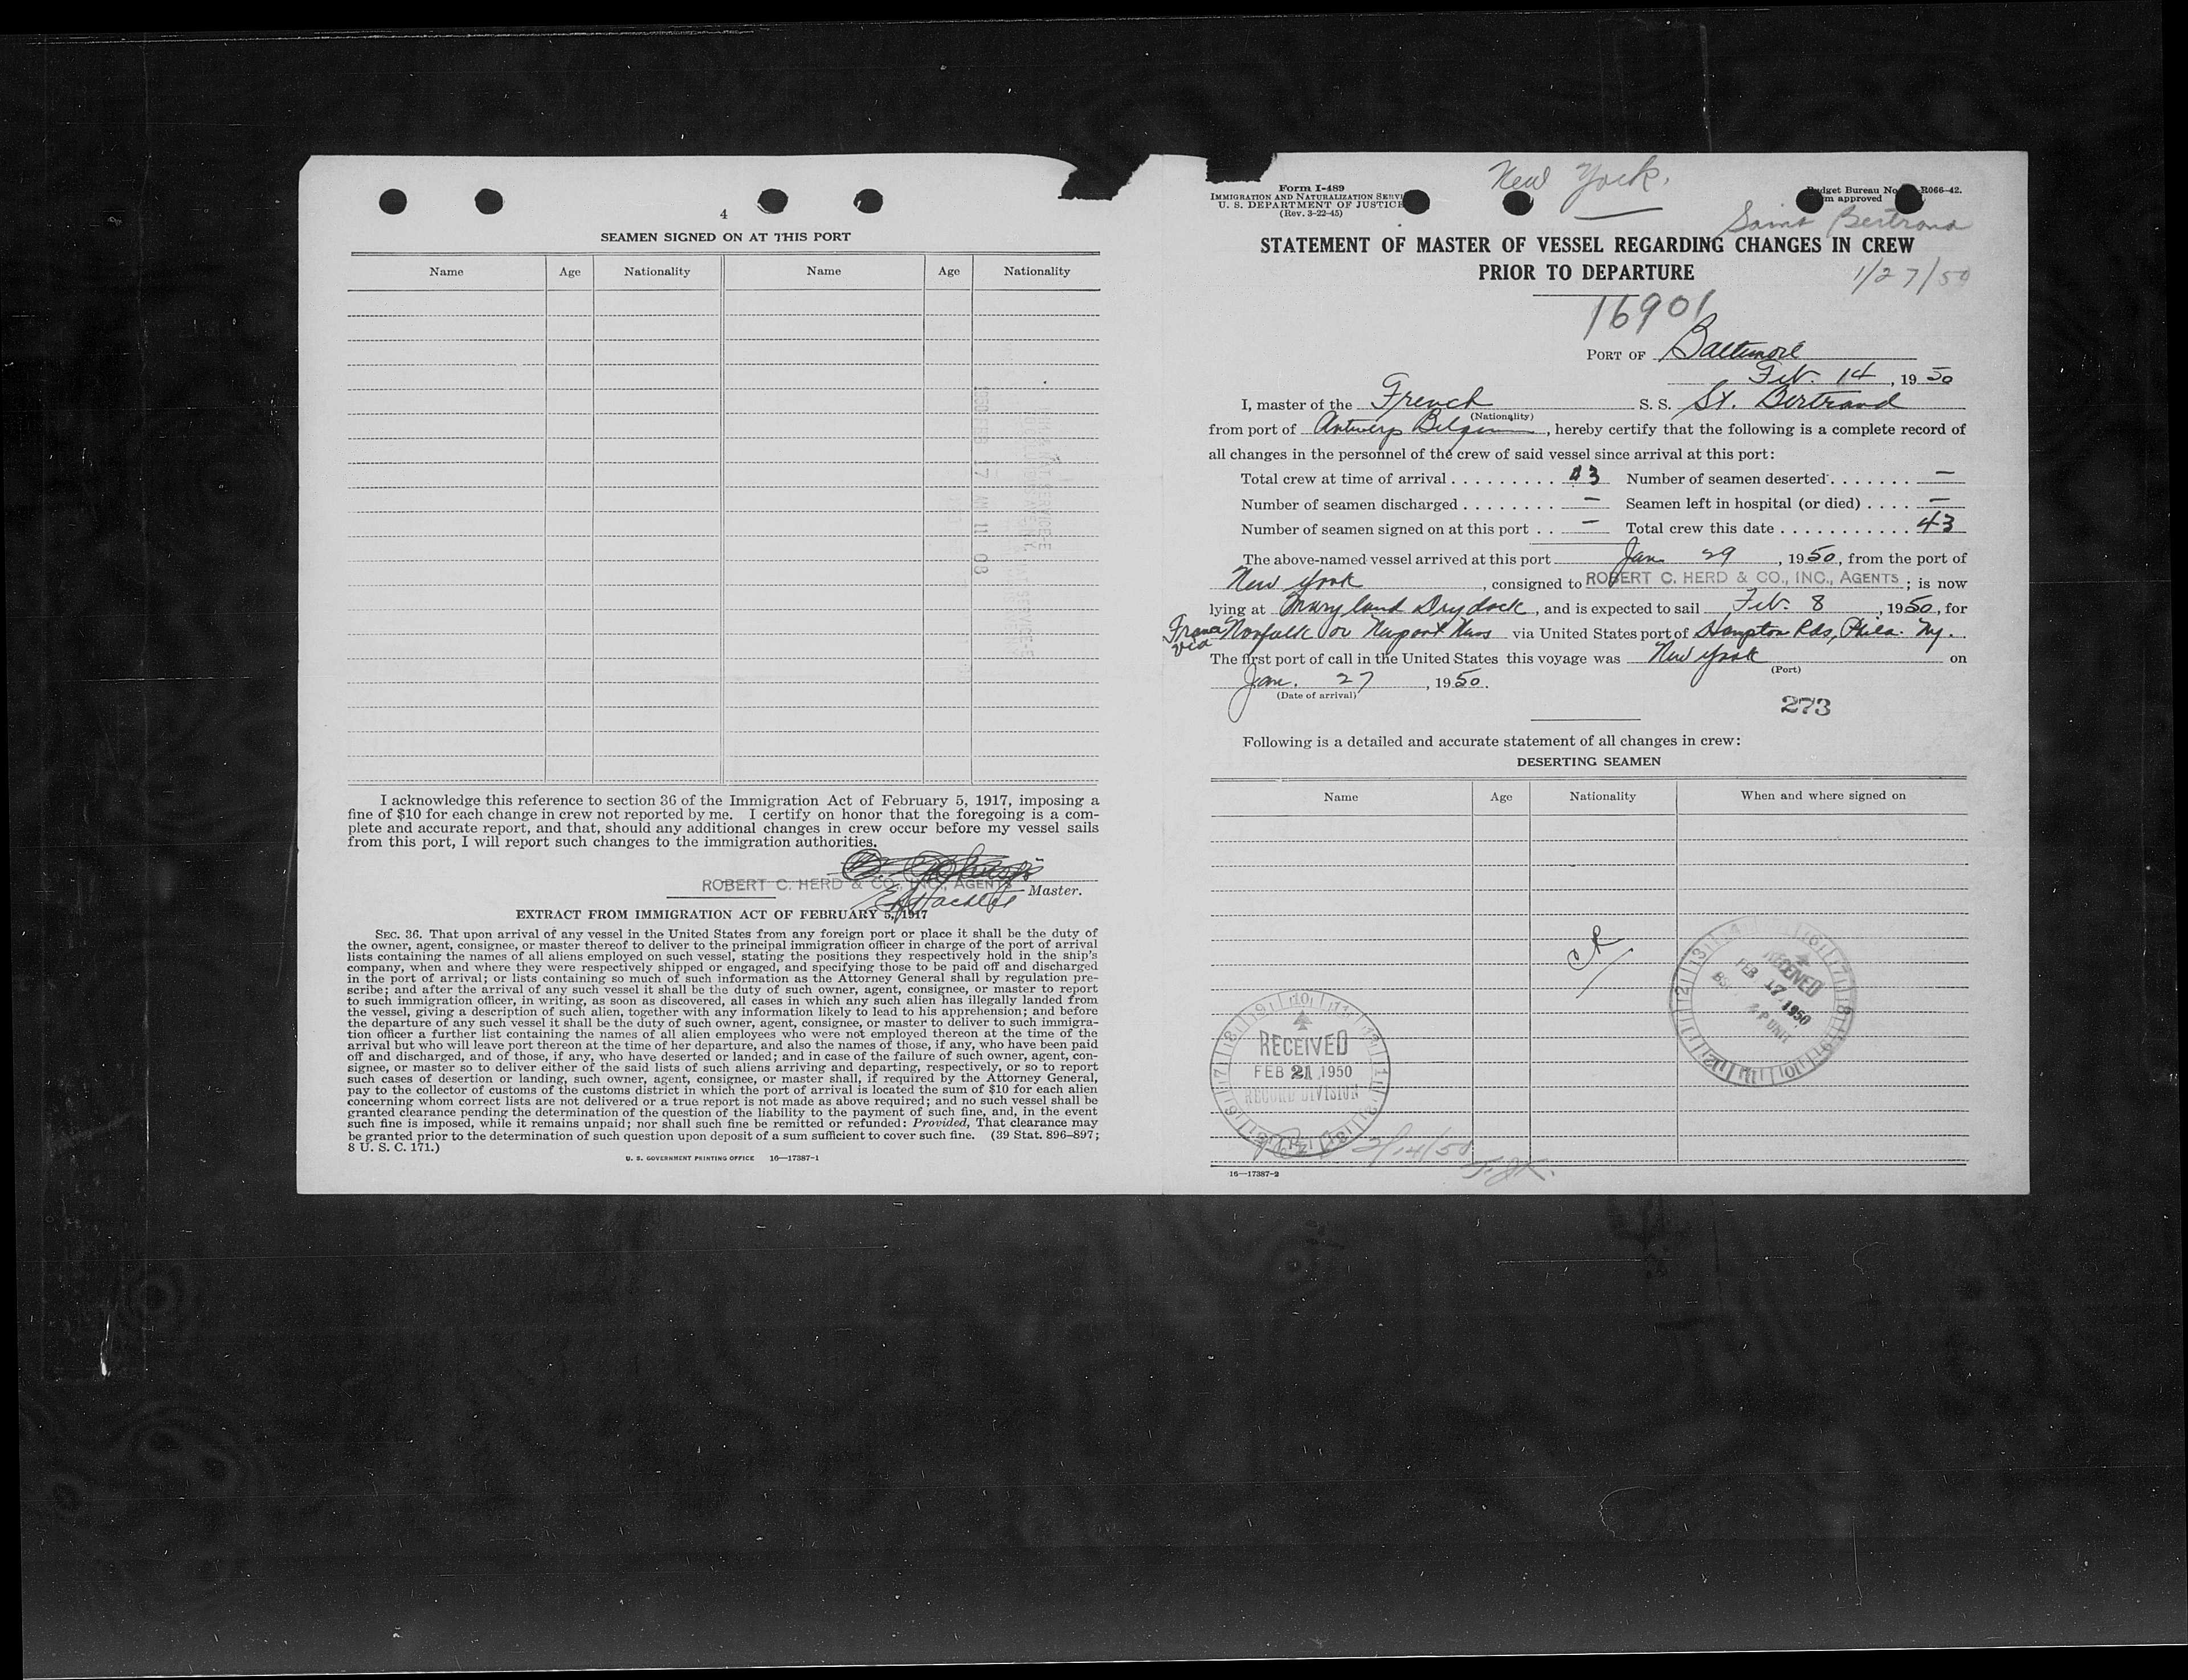 4
SEAMEN SIGNED ON AT THIS PORT
Name Age Nationality Name Age Nationality
I acknowledge this reference to section 36 of the Immigration Act of February 5, 1917, imposing a
fine of $10 for each change in crew not reported by me. I certify on honor that the foregoing is a com-
plete and accurate report, and that, should any additional changes in crew occur before my vessel sails
from this port, I will report such changes to the immigration authorities.
ROBERT C. HERD & CO., INC., AGENTS
Master.
EXTRACT FROM IMMIGRATION ACT OF FEBRUARY 5, 1917
SEC. 36. That upon arrival of any vessel in the United States from any foreign port or place it shall be the duty of
the owner, agent, consignee, or master thereof to deliver to the principal immigration officer in charge of the port of arrival
lists containing the names of all aliens employed on such vessel, stating the positions they respectively hold in the ship's
company, when and where they were respectively shipped or engaged, and specifying those to be paid off and discharged
in the port of arrival; or lists containing so much of such information as the Attorney General shall by regulation pre-
scribe; and after the arrival of any such vessel it shall be the duty of such owner, agent, consignee, or master to report
to such immigration officer, in writing, as soon as discovered, all cases in which any such alien has illegally landed from
the vessel, giving a description of such alien, together with any information likely to lead to his apprehension; and before
the departure of any such vessel it shall be the duty of such owner, agent, consignee, or master to deliver to such immigra-
tion officer a further list containing the names of all alien employees who were not employed thereon at the time of the
arrival but who will leave port thereon at the time of her departure, and also the names of those, if any, who have been paid
off and discharged, and of those, if any, who have deserted or landed; and in case of the failure of such owner, agent, con-
signee, or master so to deliver either of the said lists of such aliens arriving and departing, respectively, or so to report
such cases of desertion or landing, such owner, agent, consignee, or master shall, if required by the Attorney General,
pay to the collector of customs of the customs district in which the port of arrival is located the sum of $10 for each alien
concerning whom correct lists are not delivered or a true report is not made as above required; and no such vessel shall be
granted clearance pending the determination of the question of the liability to the payment of such fine, and, in the event
such fine is imposed, while it remains unpaid; nor shall such fine be remitted or refunded: Provided, That clearance may
be granted prior to the determination of such question upon deposit of a sum sufficient to cover such fine. (39 Stat. 896-897;
8 U. S. C. 171.)
U. S. GOVERNMENT PRINTING OFFICE 16—17387-1
New York.
Form I-489
IMMIGRATION AND NATURALIZATION SERVI
U. S. DEPARTMENT OF JUSTICE
(Rev. 3-22-45)
dget Bureau No R066-42.
m approved
Saint Bertrand
STATEMENT OF MASTER OF VESSEL REGARDING CHANGES IN CREW
PRIOR TO DEPARTURE
1/27/50
16901
PORT OF Baltimore
Feb. 14, 1950
I, master of the French S. S. St. Bertrand
(Nationality)
from port of Antwerp Belgium, hereby certify that the following is a complete record of
all changes in the personnel of the crew of said vessel since arrival at this port:
Total crew at time of arrival . . . . . . . . . 43 Number of seamen deserted . . . . . . . —
Number of seamen discharged . . . . . . . . — Seamen left in hospital (or died) . . . . —
Number of seamen signed on at this port . . — Total crew this date . . . . . . . . . . . 43
The above-named vessel arrived at this port Jan 29, 1950, from the port of
New York, consigned to ROBERT C. HERD & CO., INC., AGENTS; is now
lying at Maryland Drydock, and is expected to sail Feb. 8, 1950, for
France via Norfolk or Newport News via United States port of Hampton Rds, Phila. Ny.
The first port of call in the United States this voyage was New York on
(Port)
Jan. 27, 1950.
(Date of arrival)
273
Following is a detailed and accurate statement of all changes in crew:
DESERTING SEAMEN
Name Age Nationality When and where signed on
RECEIVED
FEB 17 1950
RECEIVED
FEB 21 1950
RECORD DIVISION
2/14/50
16—17387-2